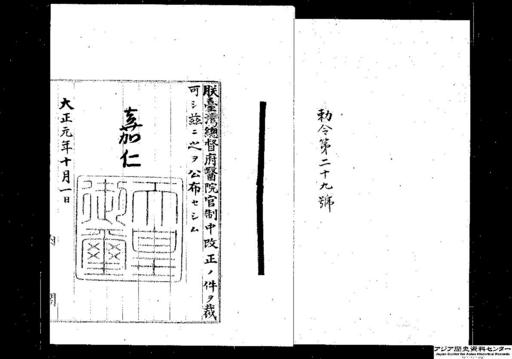 勅令第二十九號
朕臺灣總督府醫院官制中改正ノ件ヲ裁
可シ茲ニ之ヲ公布セシム
嘉仁
天皇
御璽
大正元年十月一日
内閣
アジア歴史資料センター
Japan Center for Asian Historical Records